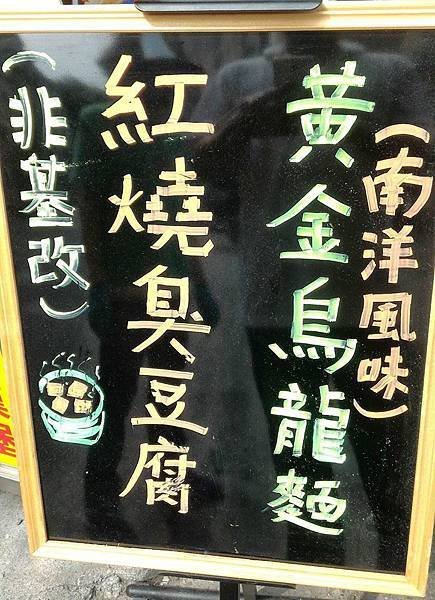 (南洋風味)
黃金烏龍麵
紅燒臭豆腐
(非基改)